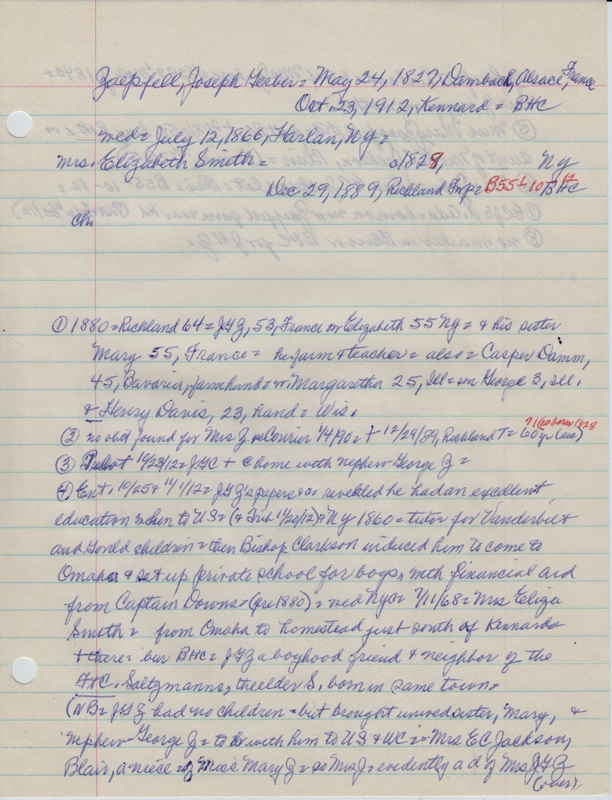 Zaepfell, Joseph Gerber = May 24, 1827, Dambach, Alsace, France
Oct. 23, 1912, Kennard = BHC
med = July 12, 1866, Harlan, Ny =
Mrs. Elizabeth Smith = a1828, Ny
Dec 29, 1889, Richland Twp = B55 1 10 12 BHC
Chi
① 1880 = Richland 64 = JGZ, 53, France w Elizabeth 55 Ny = & his sister
Mary 55, France = he farm & teacher = also = Casper Damm,
45, Bavaria, farmhand = w. Margaretha 25, Ill = son George 3, Ill.
& Henry Davis, 23, hand = Wis.
② no obit found for Mrs Z, Courier 1/4/90 = + 12/29/89, Richland T = 60 yr (sic)
③ Pilot 10/23/12 = JGC + @ home with nephew George Z =
④ Ent. 10/25 & 11/1/12 = JGZ's papers revealed he had an excellent
education when to US = (& Trib 11/20/12) & Ny 1860 = tutor for Vanderbilt
and Gould children = then Bishop Clarkson induced him to come to
Omaha & set up private school for boys, with financial aid
from Captain Downs = (pre 1880) = med nyc = 7/11/68 = Mrs Eliza
Smith = from Omaha to homestead just south of Kennard =
+ there: bur BHC = JGZ a boyhood friend & neighbor of the
Saltzmanns, the elder S. born in same town =
(NB = JGZ had no children = but brought unwed sister, Mary, &
nephew George Z = to be with him to US & WC = Mrs E C Jackson,
Blair, a niece of Miss Mary Z = so Mrs J evidently a d of Mrs JGZ
(over)